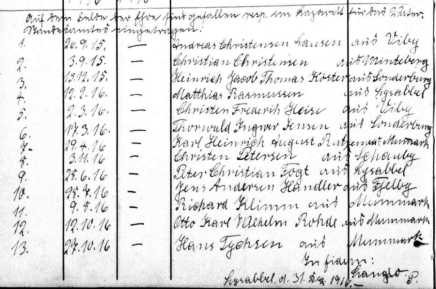 Auf dem Felde der Ehre sind gefallen resp. im Lazarett für das Vater-
1. 20.9.15. — Andreas Christensen Lausen aus Viby
2. 3.9.15. — Christian Christensen aus Minteberg
3. 15.12.15. — Heinrich Jacob Thomas Köster aus Sonderburg
4. 12.2.16. — Matthias Rasmussen aus Lysabbel
5. 2.3.16. — Christen Frederik Heise aus Viby
6. 17.3.16. — Thorwald Ingwer Jensen aus Sonderburg
7. 29.4.16 — Karl Heinrich August aus Mummark
8. 3.11.16 — Christen Petersen aus Schauby
9. 28.6.16 — Peter Christian Fogt aus Lysabbel
10. 25.7.16 — Jens Andersen Handler aus Fjelby
11. 9.5.16 — Richard Klimm aus Mummark
12. 12.10.16 — Otto Karl Wilhelm Rohde aus Mummark
13. 27.10.16 — Hans Tychsen aus Mummark
In fidem:
Lysabbel, d. 31. Dez. 1916.